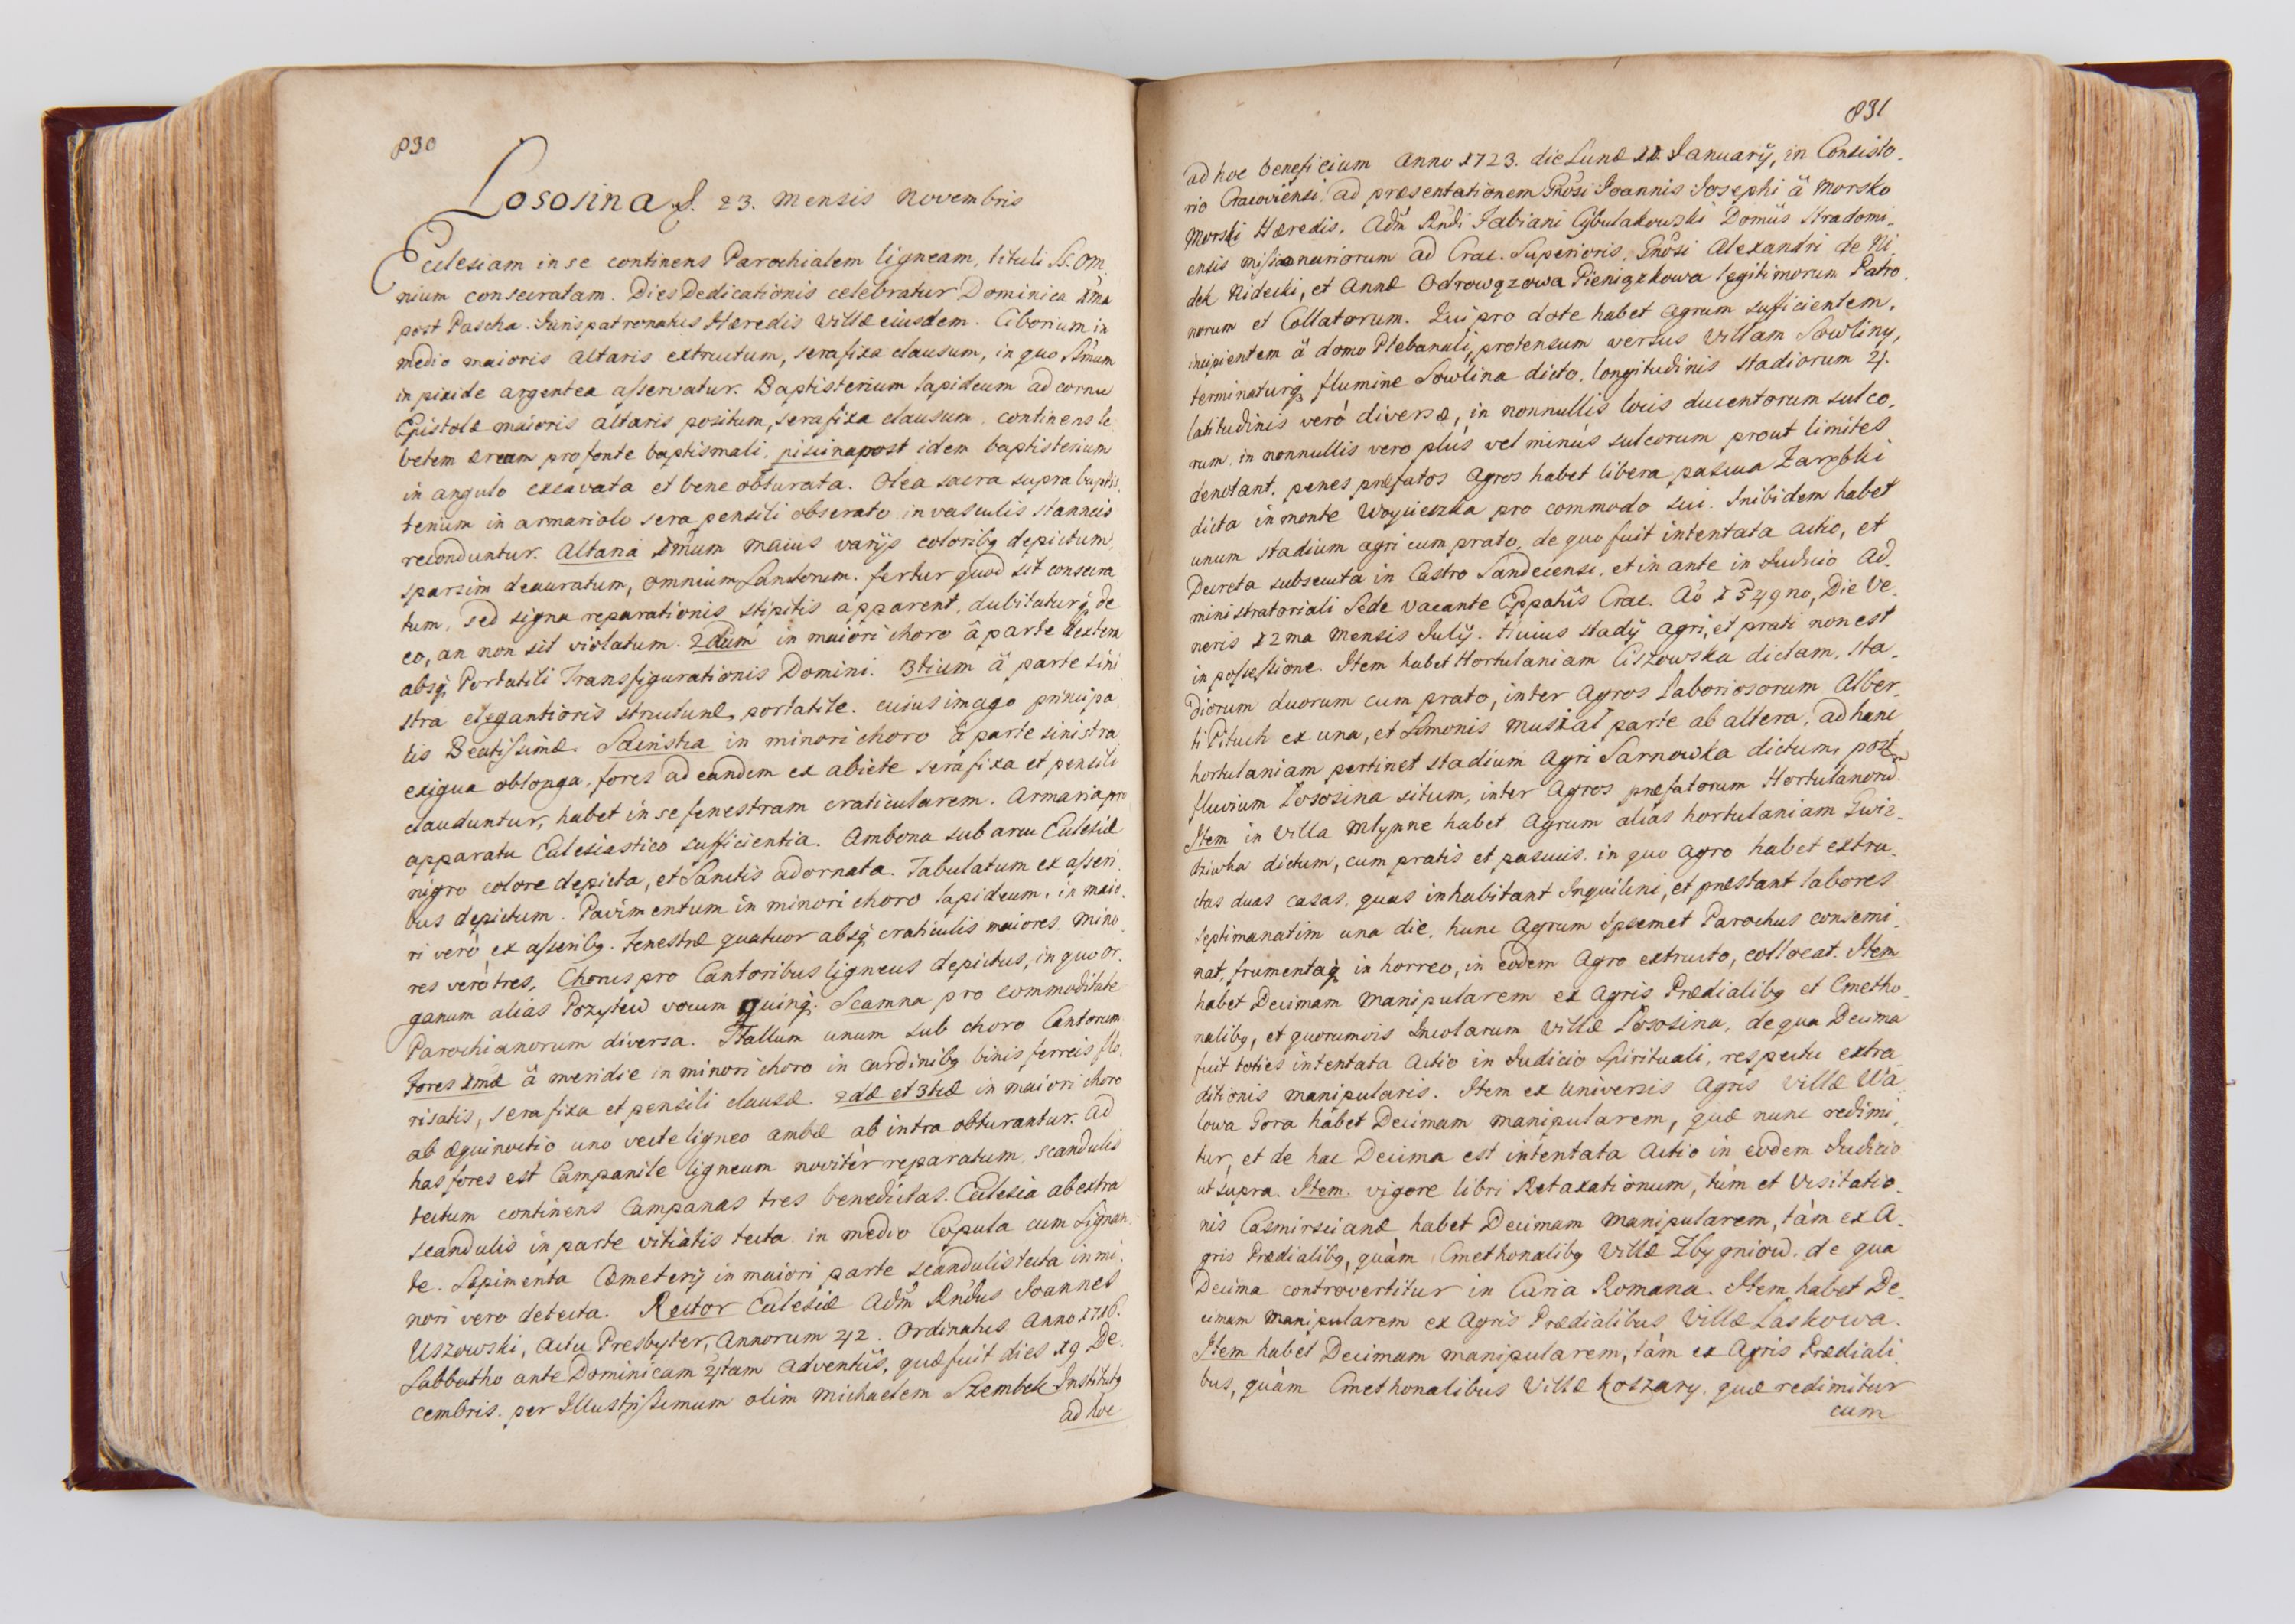 830
Lososina S. 23. Mensis Novembris
Ecclesiam in se continens Parochialem ligneam, tituli SS. Om
nium consecratam. Dies Dedicationis celebratur Dominica 1ma
post Pascha. Jurispatronatus Hæredis Villæ eiusdem. Ciborium in
medio maioris altaris extructum, sera fixa clausum, in quo SSmum
in pixide argentea asservatur. Baptisterium lapideum ad cornu
Epistolæ maioris altaris positum, sera fixa clausum, continens le
betem æream pro fonte baptismali, piscina post idem baptisterium
in angulo excavata et bene obturata. Olea sacra supra baptis
terium in armariolo sera pensili obserato in vasculis stanneis
reconduntur. Altaria 1mum maius varijs coloribq depictum,
sparsim deauratum, omnium Sanctorum. fertur quod sit consecra
tum, sed signa reparationis stipitis apparent, dubitaturq de
eo, an non sit violatum. 2dum in maiori choro â parte dextera
absq Portatili Transfigurationis Domini. 3tium â parte sini
stra elegantioris structuræ, portatile. cuius imago principa
lis Beatissimæ. Sacristia in minori choro â parte sinistra
exigua oblonga, fores ad eandem ex abiete sera fixa et pensili
clauduntur, habet in se fenestram craticularem. Armaria pro
apparatu Ecclesiastico sufficientia. Ambona sub arcu Ecclesiæ
nigro colore depicta, et Sanctis adornata. Tabulatum ex asseri
bus depictum. Pavimentum in minori choro lapideum, in maio
ri verò ex asseribq. Fenestræ quatuor absq craticulis maiores, mino
res verò tres. Chorus pro Cantoribus ligneus depictus, in quo or
ganum alias Pozytew vocum quinq. Scamna pro commoditate
Parochianorum diversa. Stallum unum sub choro Cantorum
Fores 1mæ â meridie in minori choro in cardinibq binis ferreis flo
risatis, sera fixa et pensili clausæ. 2dæ et 3tiæ in maiori choro
ab æquinoctio uno vecte ligneo ambæ ab intra obturantur. ad
has fores est Campanile ligneum novitèr reparatum, scandulis
tectum continens Campanas tres benedictas. Ecclesia ab extra
scandulis in parte vitiatis tecta. in medio Copula cum Signan
te. Sepimenta Cæmeterij in maiori parte scandulis tecta in mi
nori vero detecta. Rector Ecclesiæ Adm Rndus Joannes
Uszowski, actu Presbyter, Annorum 42. Ordinatus Anno 1716.
Sabbatho ante Dominicam 4tam Adventûs, quæ fuit dies 19 De
cembris. per Illustrissimum olim Michaelem Szembek Institutq
ad hoc
831
ad hoc beneficium Anno 1723. die Lunæ Januarij, in Consisto
rio Cracoviensi, ad præsentationem Gnosi Joannis Josephi â Morsko
Morski Hæredis. Adm Rndi Fabiani Cybulakowski Domûs Stradomi
ensis missionariorum ad Crac. Superioris, Gnosi Alexandri de Ni
dek Nidecki, et Annæ Odrowązowa Pieniązkowa legitimorum Patro
norum et Collatorum. Qui pro dote habet agrum sufficientem,
incipientem â domo Plebanali, protensum versus Villam Sowliny,
terminaturq flumine Sowlina dicto, longitudinis stadiorum 4.
latitudinis verò diversæ, in nonnullis locis ducentorum sulco
rum, in nonnullis vero plùs vel minùs sulcorum prout limites
denotant. penes præfatos Agros habet libera pascua Zarębki
dicta in monte Woyucozka pro commodo sui. Inibidem habet
unum stadium agri cum prato, de quo fuit intentata actio, et
Decreta subsecuta in Castro Sandecensi, et in ante in Judicio Ad
ministratoriali Sede vacante Eppatûs Crac. Aô 1549no, Die Ve
neris 12ma Mensis Julij. huius stadij agri, et prati non est
in possessione. Item habet Hortulaniam Ciszowska dictam, sta
diorum duorum cum prato, inter Agros Laboriosorum Alber
ti Pituch ex una, et Simonis Musiał parte ab altera, ad hanc
hortulaniam pertinet stadium Agri Sarnowka dictum, post
fluvium Lososina situm, inter Agros præfatorum Hortulanorum.
Item in Villa Młynne habet Agrum alias hortulaniam Gwiz
dziwka dictum, cum pratis et pascuis, in quo Agro habet extru
ctas duas casas, quas inhabitant Inquilini, et præstant labores
septimanatim una die, hunc Agrum Ipsemet Parochus consemi
nat, frumentaq in horreo, in eôdem Agro extructo, collocat. Item
habet Decimam Manipularem ex Agris Prædialibq et Cmetho
nalibq, et quorumvis Incolarum Villæ Lososina, de qua Decima
fuit toties intentata actio in Judicio Spirituali, respectu extra
ditionis manipularis. Item ex universis Agris Villæ Wa
lowa Gora habet Decimam manipularem, quæ nunc redimi
tur, et de hac Decima est intentata actio in eodem Judicio
ut supra. Item. vigore libri Retaxationum, tùm et Visitatio
nis Casmirscianæ habet Decimam manipularem, tàm ex A
gris Prædialibq, quàm Cmethonalibq Villæ Zbygniow. de qua
Decima controvertitur in Curia Romana. Item habet De
cimam manipularem ex Agris Prædialibus Villæ Laskowa.
Item habet Decimam manipularem, tàm ex Agris Prædiali
bus, quàm Cmethonalibus Villæ Koszary, quæ redimitur
cum